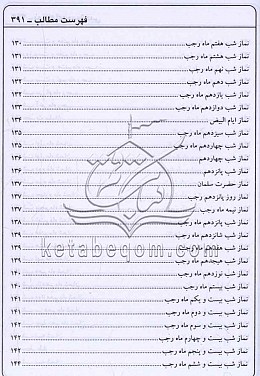 فهرست مطالب ــ ۳۹۱
نماز شب هفتم ماه رجب ........ ۱۳۰
نماز شب هشتم ماه رجب ........ ۱۳۱
نماز شب نهم ماه رجب ........ ۱۳۱
نماز شب دهم ماه رجب ........ ۱۳۲
نماز شب یازدهم ماه رجب ........ ۱۳۲
نماز شب دوازدهم ماه رجب ........ ۱۳۳
نماز ایام البیض ........ ۱۳۴
نماز شب سیزدهم ماه رجب ........ ۱۳۵
نماز شب چهاردهم ماه رجب ........ ۱۳۵
نماز شب چهاردهم ........ ۱۳۶
نماز شب پانزدهم ........ ۱۳۶
نماز حضرت سلمان ........ ۱۳۷
نماز روز پانزدهم رجب ........ ۱۳۷
نماز نیمه ماه رجب ........ ۱۳۷
نماز شب پانزدهم ماه رجب ........ ۱۳۸
نماز شب شانزدهم ماه رجب ........ ۱۳۹
نماز شب هفدهم ماه رجب ........ ۱۳۹
نماز شب هیجدهم ماه رجب ........ ۱۳۹
نماز شب نوزدهم ماه رجب ........ ۱۴۰
نماز شب بیستم ماه رجب ........ ۱۴۰
نماز شب بیست و یکم ماه رجب ........ ۱۴۱
نماز شب بیست و دوم ماه رجب ........ ۱۴۱
نماز شب بیست و سوم ماه رجب ........ ۱۴۲
نماز شب بیست و چهارم ماه رجب ........ ۱۴۲
نماز شب بیست و پنجم ماه رجب ........ ۱۴۳
نماز شب بیست و ششم ماه رجب ........ ۱۴۴
ketabeqom.com